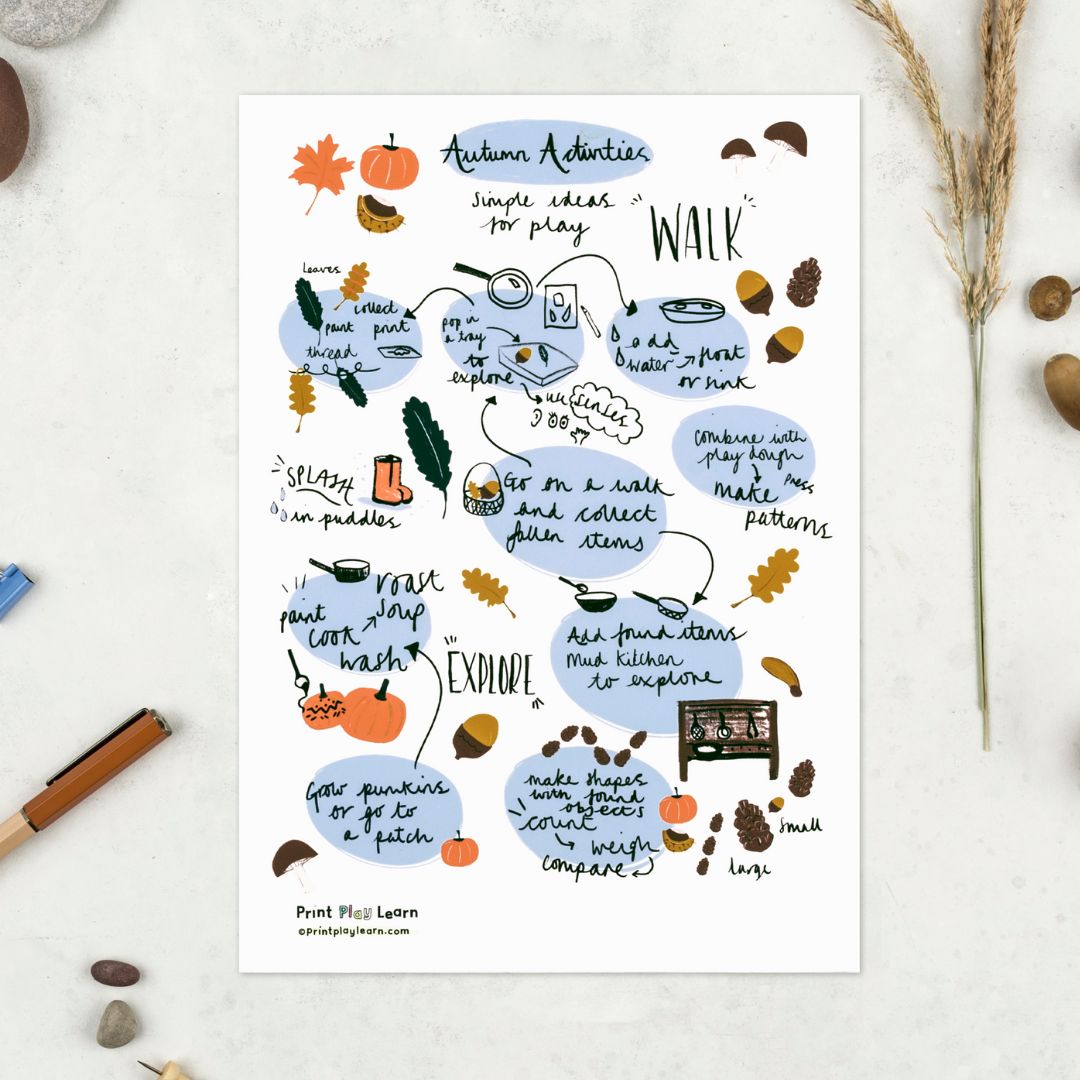 Autumn Activties
Simple ideas
for play
"WALK"
Leaves
collect
paint print
thread
pop in
a tray
to
explore
senses
add
water
float
or sink
combine with
play dough
make press
patterns
SPLASH
in puddles
Go on a walk
and collect
fallen items
roast
paint soup
cook
wash
"EXPLORE"
Add found items
Mud kitchen
to explore
Grow pumkins
or go to
a patch
make shapes
with found
objects
count
weigh
compare
small
large
Print Play Learn
©printplaylearn.com